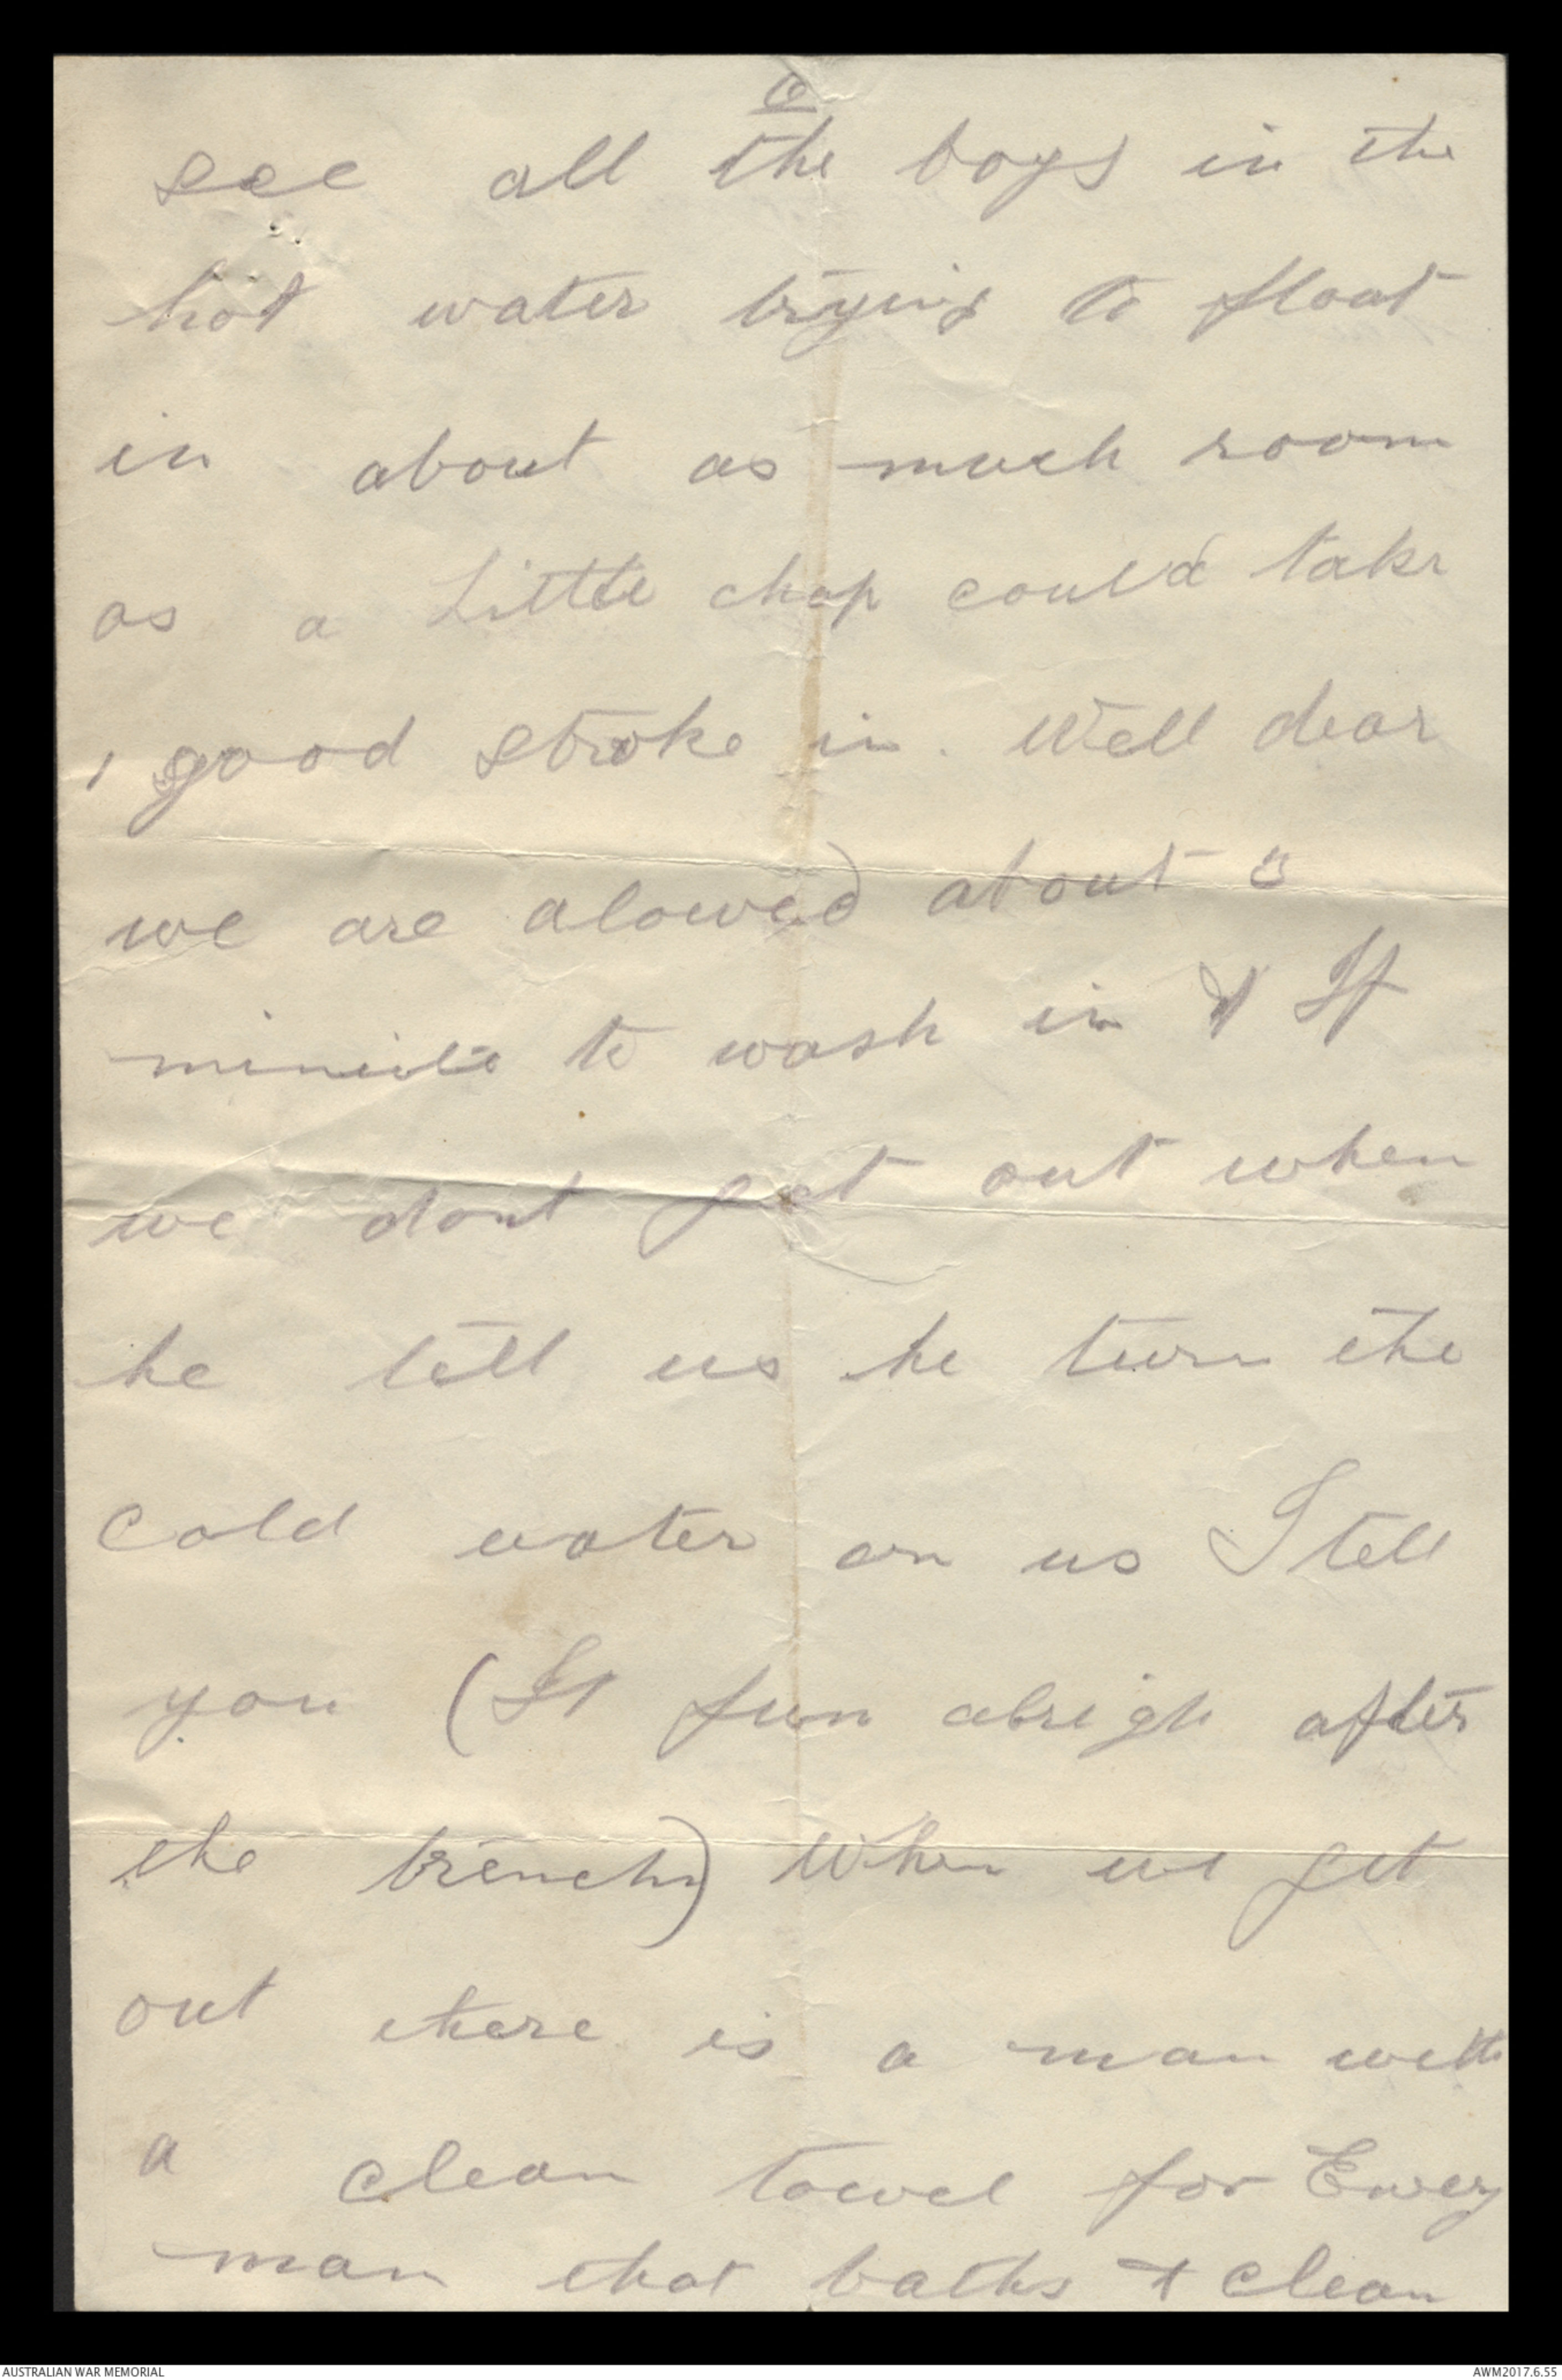 6
see all the boys in the
hot water trying to float
in about as much room
as a little chap could take
1 good stroke in. Well dear
we are alowed about
minute to wash in & If
we dont get out when
he tell us he turn the
cold water on us I tell
you (It fun alrigh after
the trench) When we get
out there is a man with
a clean towel for Every
man that baths & clean
AUSTRALIAN WAR MEMORIAL
AWM2017.6.55